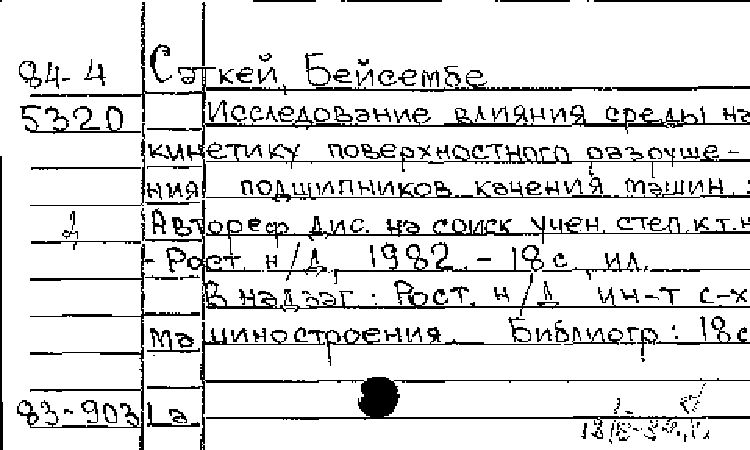 84-4 Сәткей, Бейсембе
5320 Исследование влияния среды на
кинетику поверхностного разруше-
ния подшипников качения машин :
Д Автореф. дис. на соиск. учен. степ. к.т.н
- Рост. н/Д, 1982. - 18 с., ил.
В надзаг.: Рост. н/Д ин-т с-х
машиностроения. Библиогр.: 18 с
83-9031а